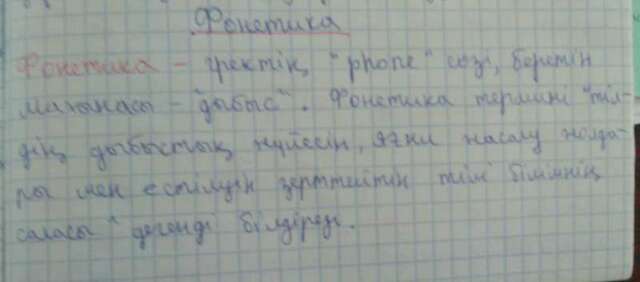 Фонетика
Фонетика – гректің "phone" сөзі, беретін
мағынасы – "дыбыс". Фонетика термині "тіл-
дің дыбыстық жүйесін, яғни жасалу жолда-
ры мен естілуін зерттейтін тіл білімінің
саласы" дегенді білдіреді.